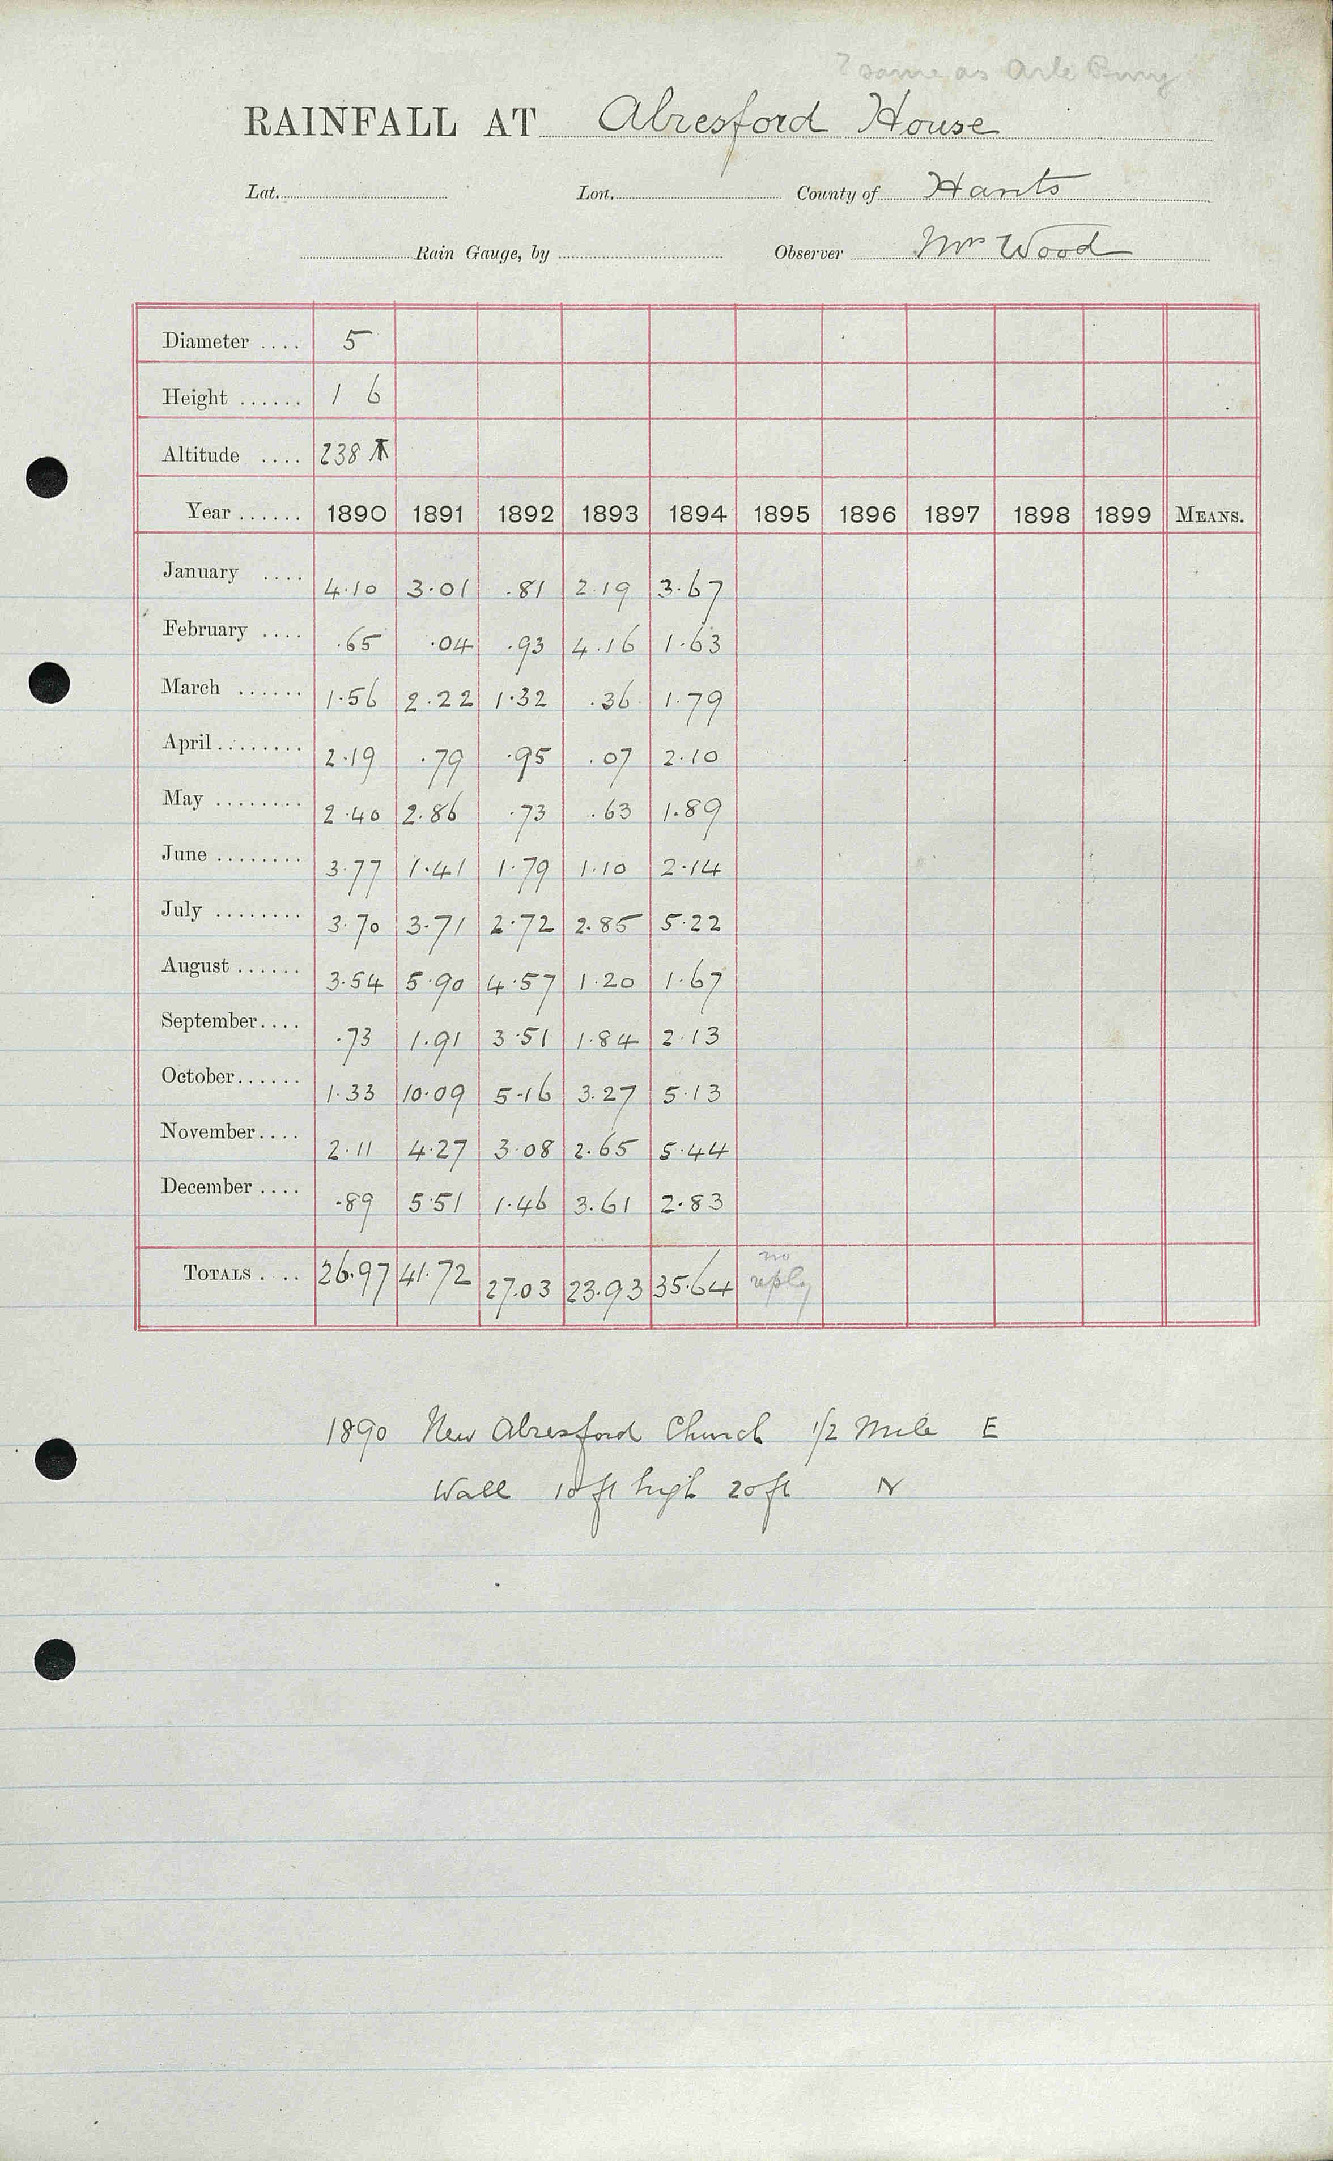 ? same as Arle Bury
RAINFALL AT Alresford House
Lat. Lon. County of Hants
Rain Gauge, by Observer Mr Wood
Diameter .... 5
Height ...... 1 6
Altitude .... 238
Year ...... 1890 1891 1892 1893 1894 1895 1896 1897 1898 1899 MEANS.
January .... 4.10 3.01 .81 2.19 3.67
February .... .65 .04 .93 4.16 1.63
March ...... 1.56 2.22 1.32 .36 1.79
April ........ 2.19 .79 .95 .07 2.10
May ........ 2.40 2.86 .73 .63 1.89
June ........ 3.77 1.41 1.79 1.10 2.14
July ........ 3.70 3.71 2.72 2.85 5.22
August ...... 3.54 5.90 4.57 1.20 1.67
September.... .73 1.91 3.51 1.84 2.13
October...... 1.33 10.09 5.16 3.27 5.13
November.... 2.11 4.27 3.08 2.65 5.44
December .... .89 5.51 1.46 3.61 2.83
TOTALS .... 26.97 41.72 27.03 23.93 35.64 no reply
1890 New Alresford Church 1/2 Mile E
Wall 10 ft high 20 ft N